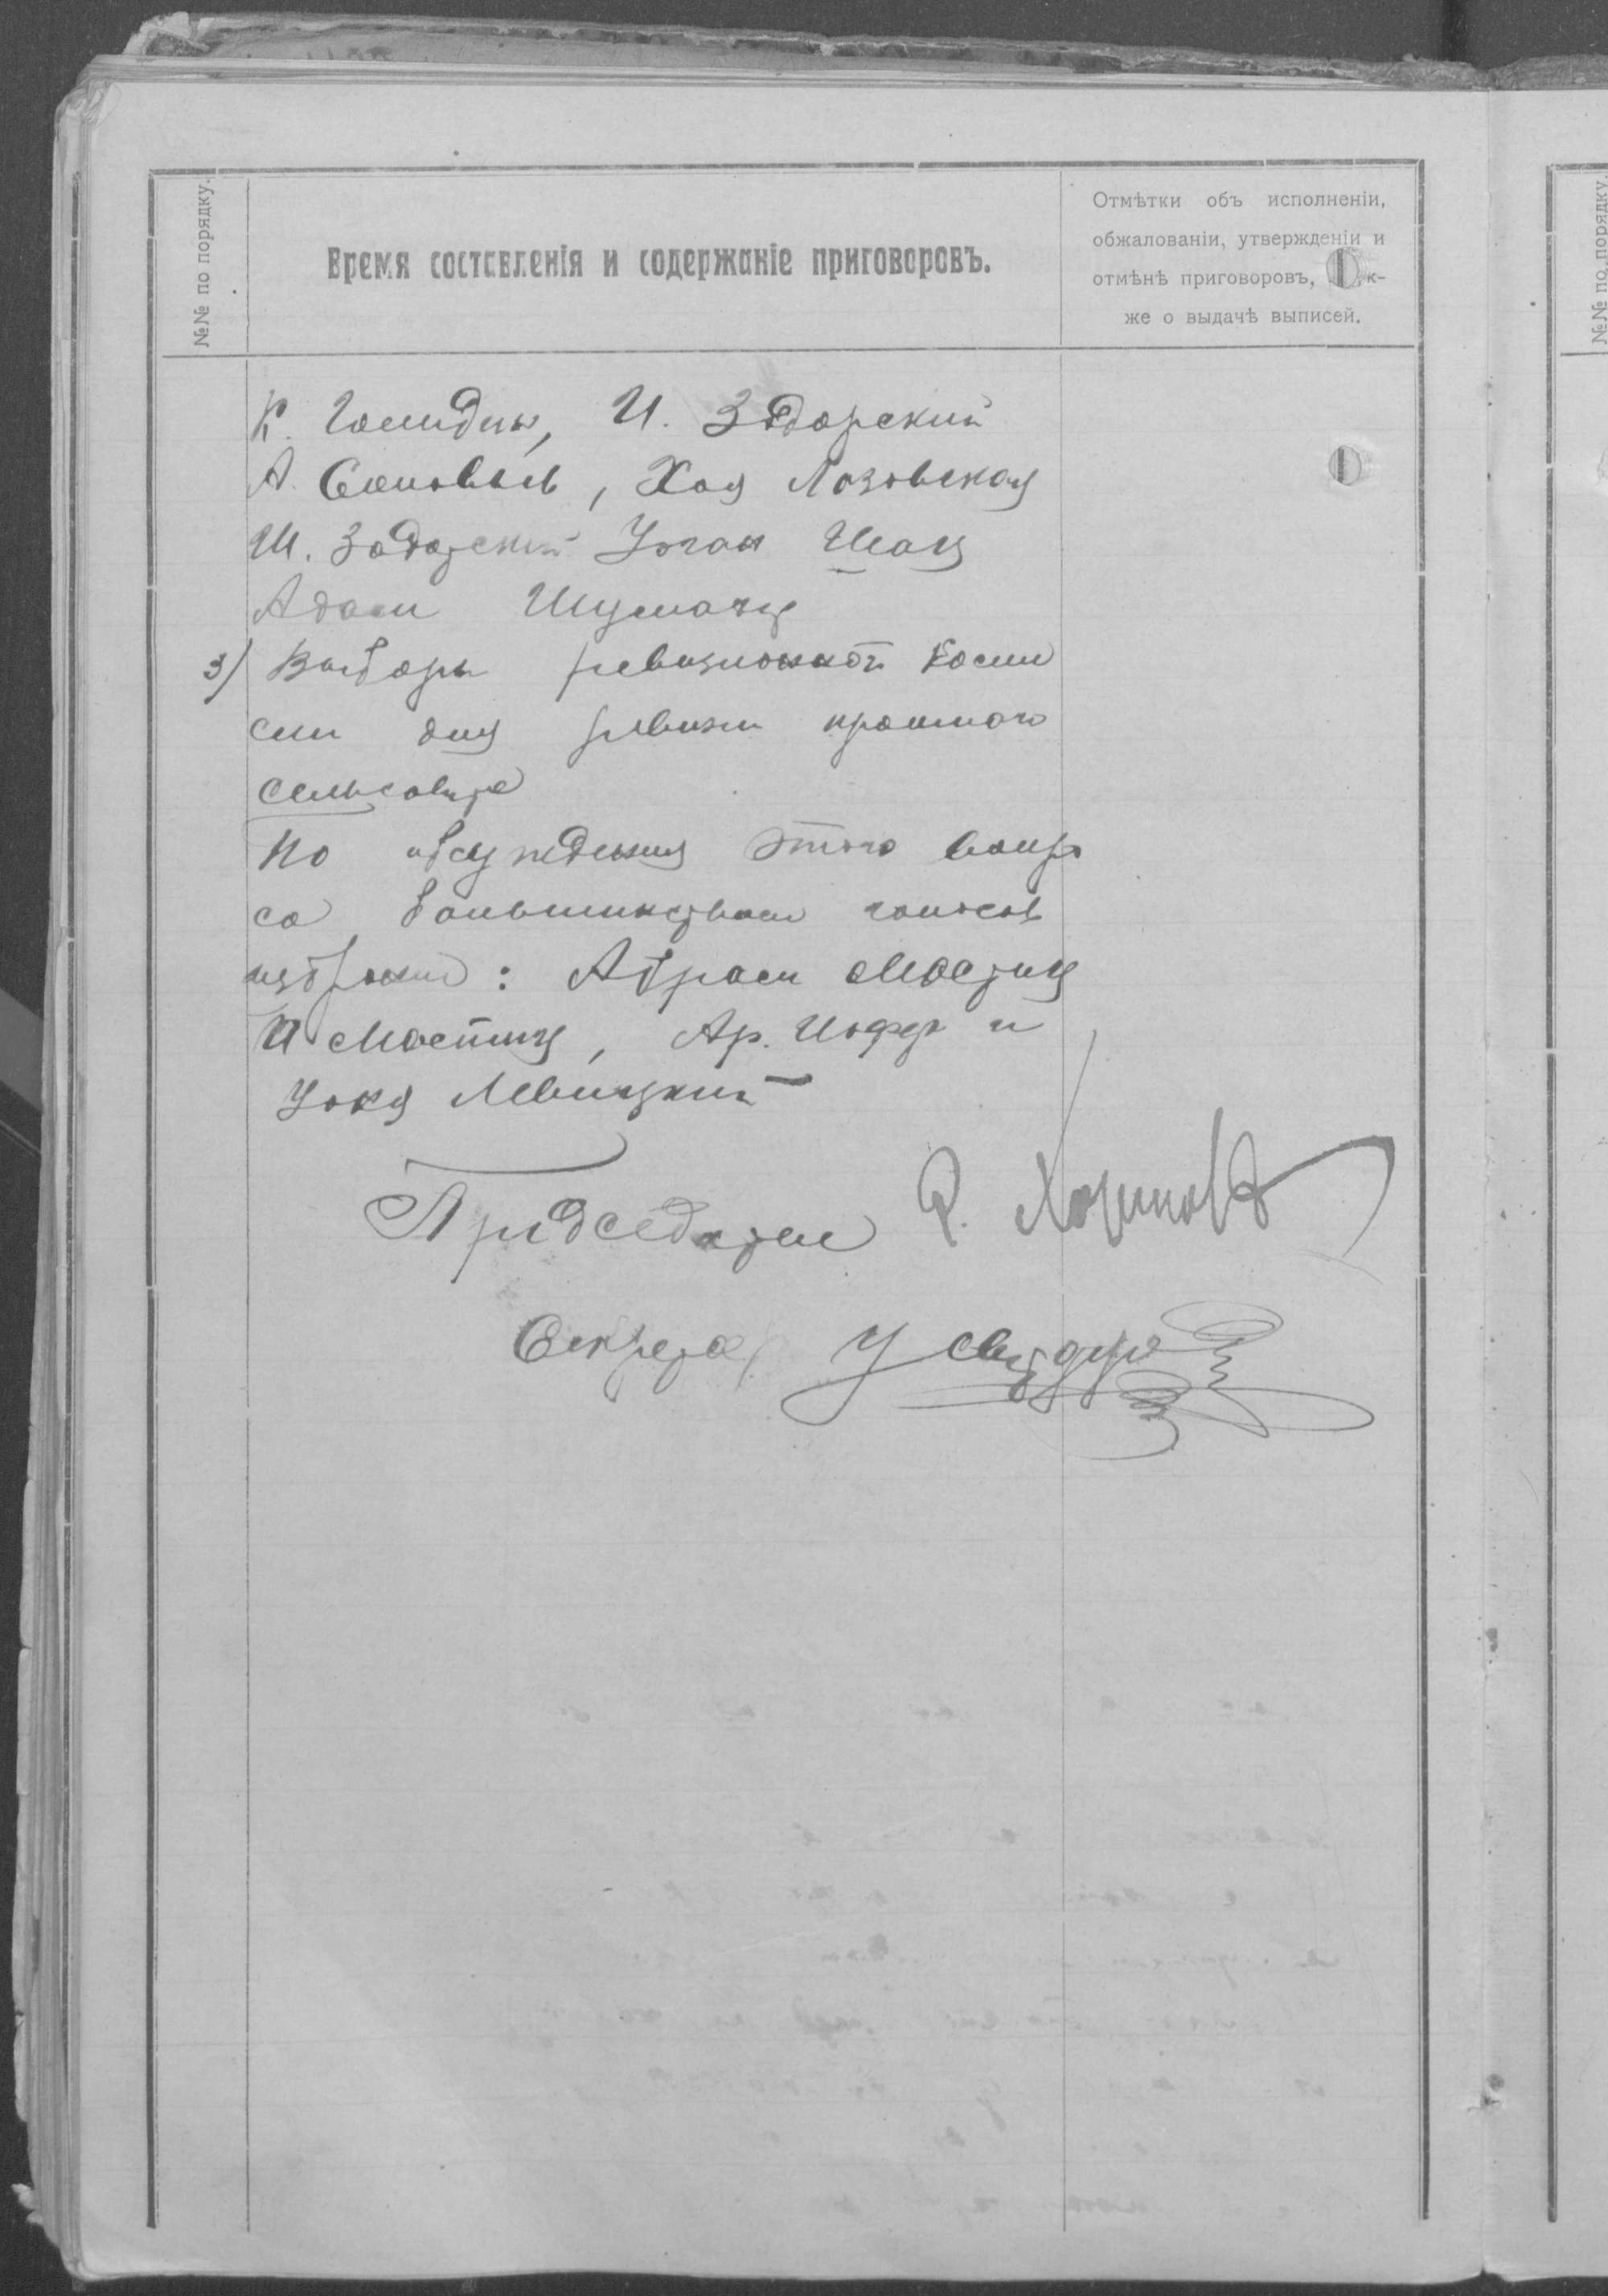 №№ по порядку.
Время составленія и содержаніе приговоровъ.
Отмѣтки объ исполненіи,
обжалованіи, утвержденіи и
отмѣнѣ приговоровъ, к-
же о выдачѣ выписей.
И. Задорский
А. Соловьев, Хая Лозовская
Ш. Задорский Йоган Шац
Адам
3) Выборы ревизионной Коми
сии для ревизи прошлого
сельсовета
По обсуждения этого вопро
са большинством голосов
избрани: Абрам Мостиц
И Мостиц, Ар. Иоффе и
Левицкий
Председател
Секретар
№№ по порядку.